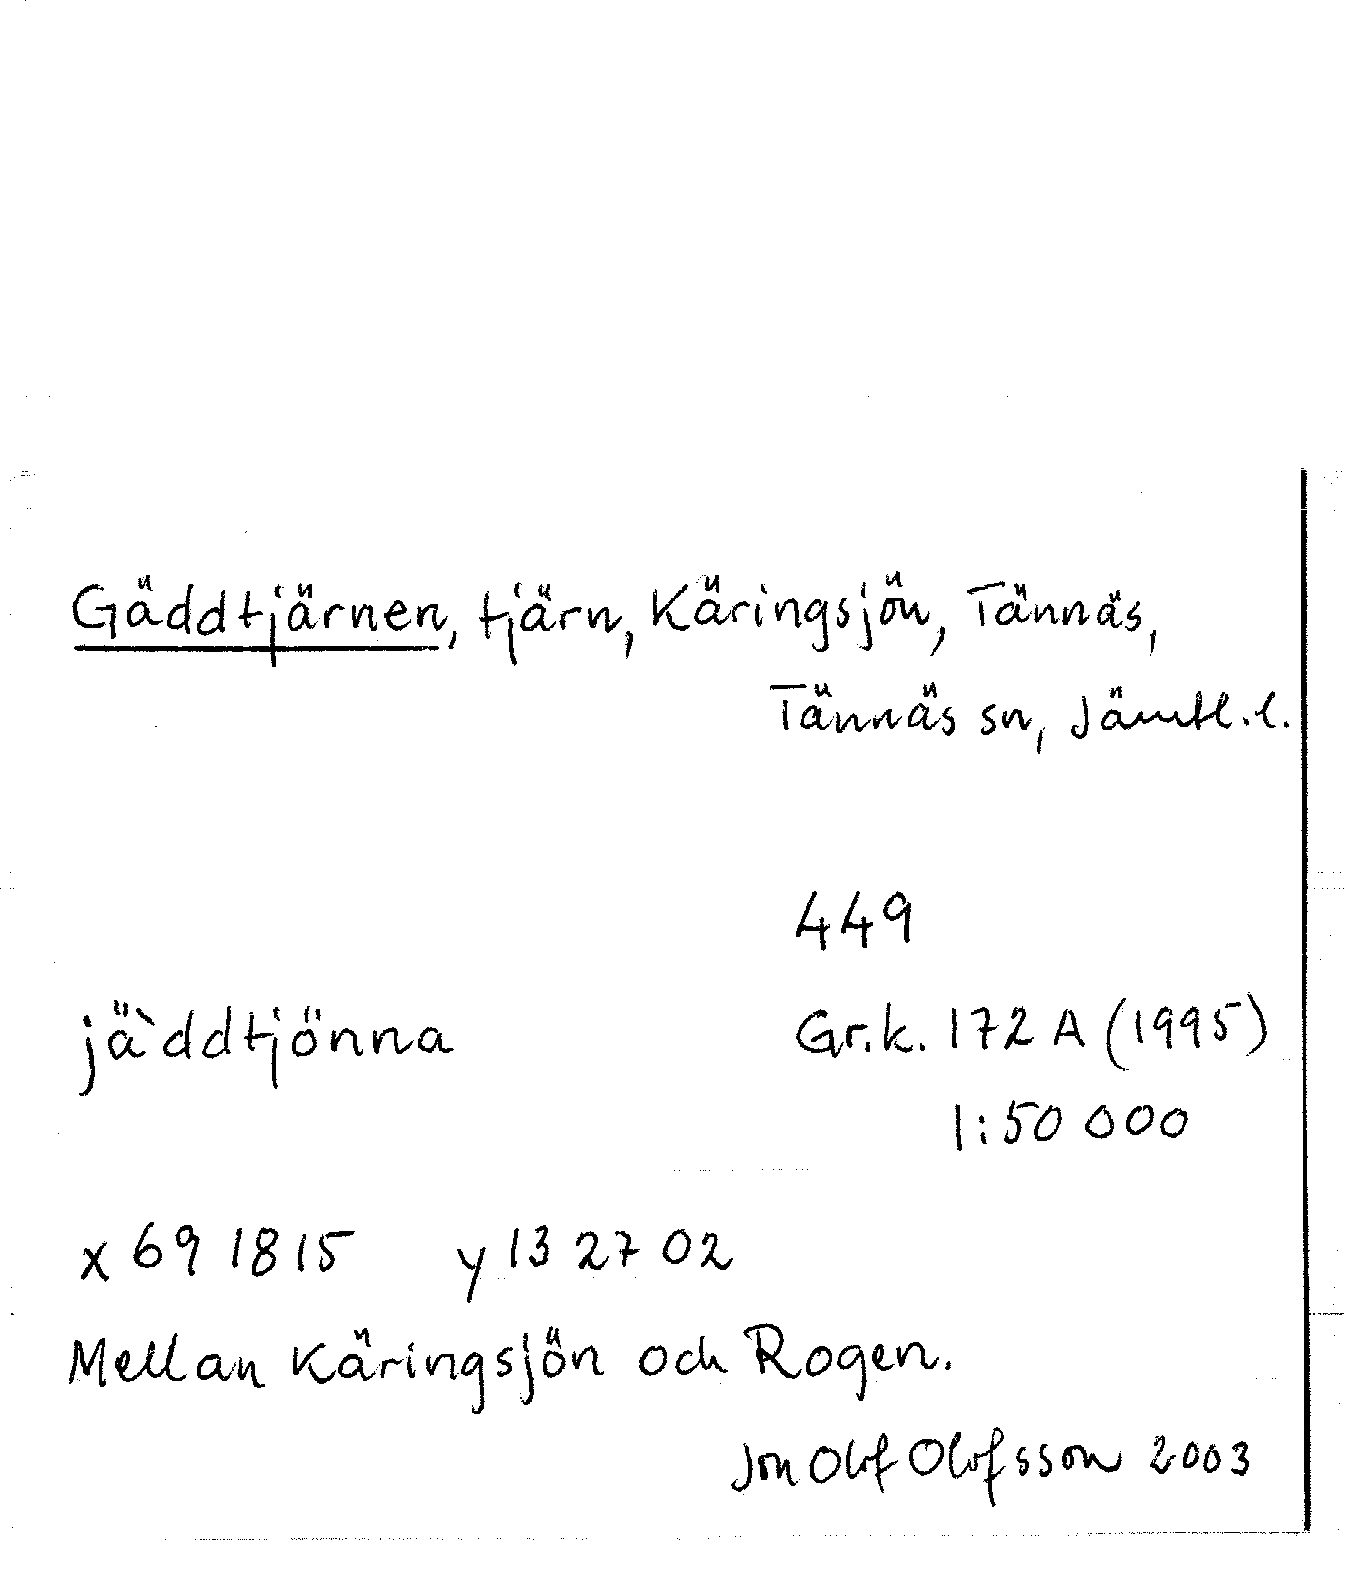 Gäddtjärnen, tjärn, Käringsjön, Tännäs,
Tännäs sn, Jämtl.l.
449
jä`ddtjönna Gr.k. 172 A (1995)
1:50 000
x 69 18 15 y 13 27 02
Mellan Käringsjön och Rogen.
Jon Olof Olofsson 2003